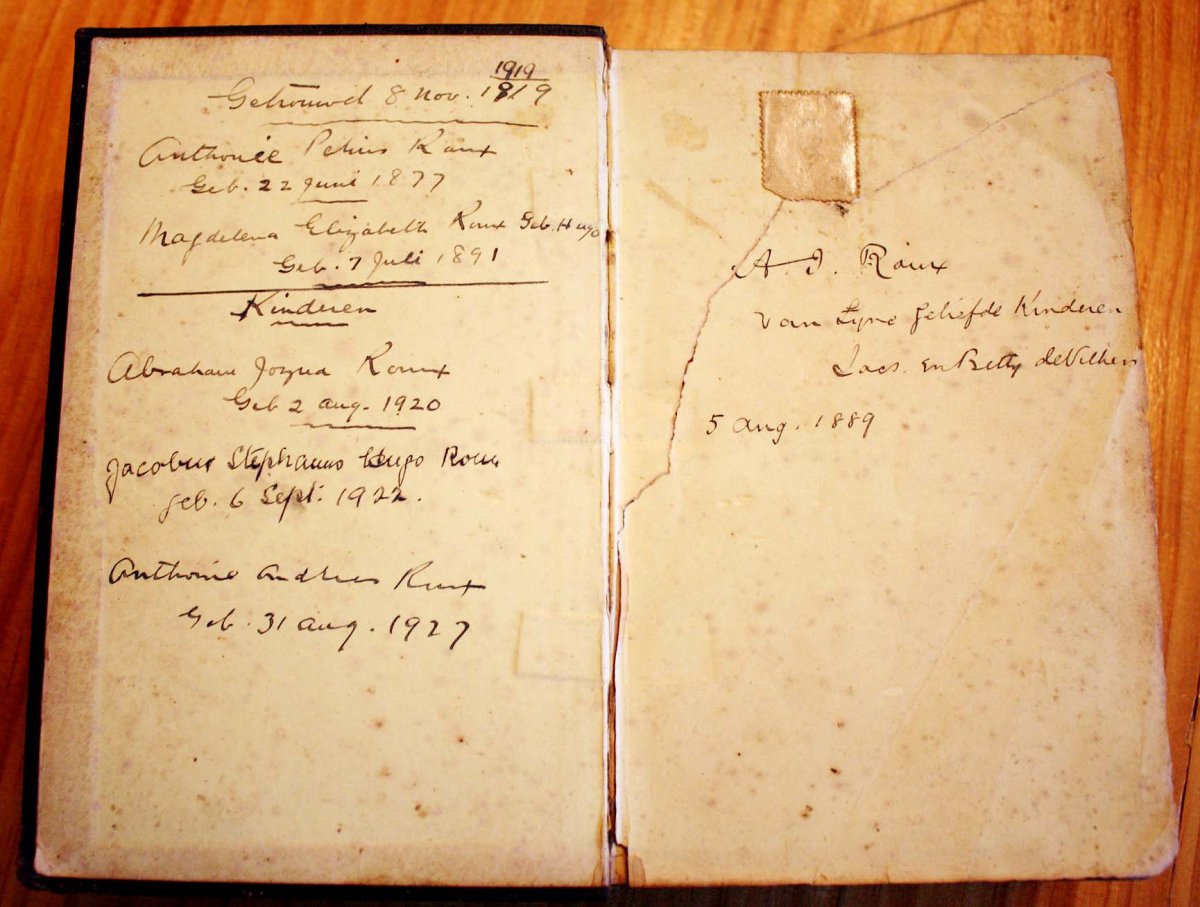 1919
Getrouwd 8 Nov. 1919
Anthonie Petrus Roux
Geb. 22 Juni 1877
Magdelena Elizabeth Roux Geb. Hugo
Geb. 7 Juli 1891
Kinderen
Abraham Jozua Roux
Geb 2 aug. 1920
Jacobus Stephanus Hugo Roux
geb. 6 Sept. 1922.
Anthonie Andries Roux
Geb. 31 aug. 1927
A. J. Roux
van Zyne geliefde Kinderen
en Betty deVilliers
5 aug. 1889